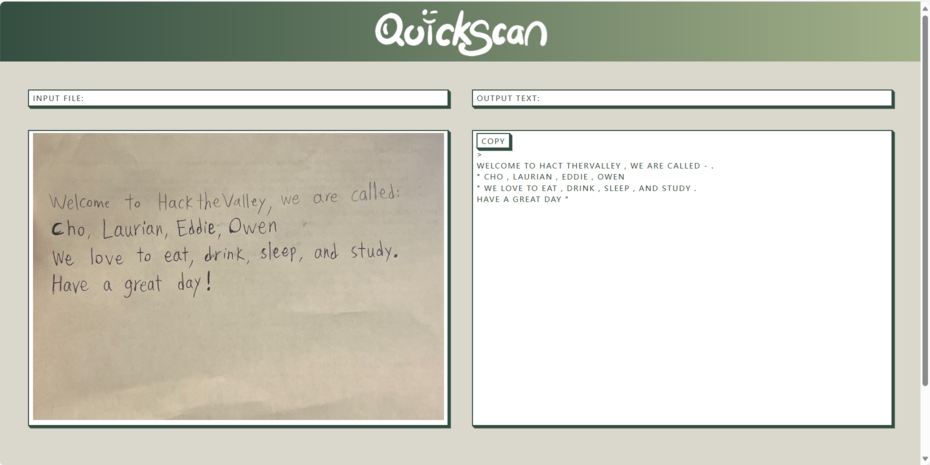 QuickScan
INPUT FILE:
OUTPUT TEXT:
Welcome to HacktheValley, we are called:
Cho, Laurian, Eddie, Owen
We love to eat, drink, sleep, and study.
Have a great day!
COPY
>
WELCOME TO HACT THERVALLEY , WE ARE CALLED - .
" CHO , LAURIAN , EDDIE , OWEN
" WE LOVE TO EAT , DRINK , SLEEP , AND STUDY .
HAVE A GREAT DAY "